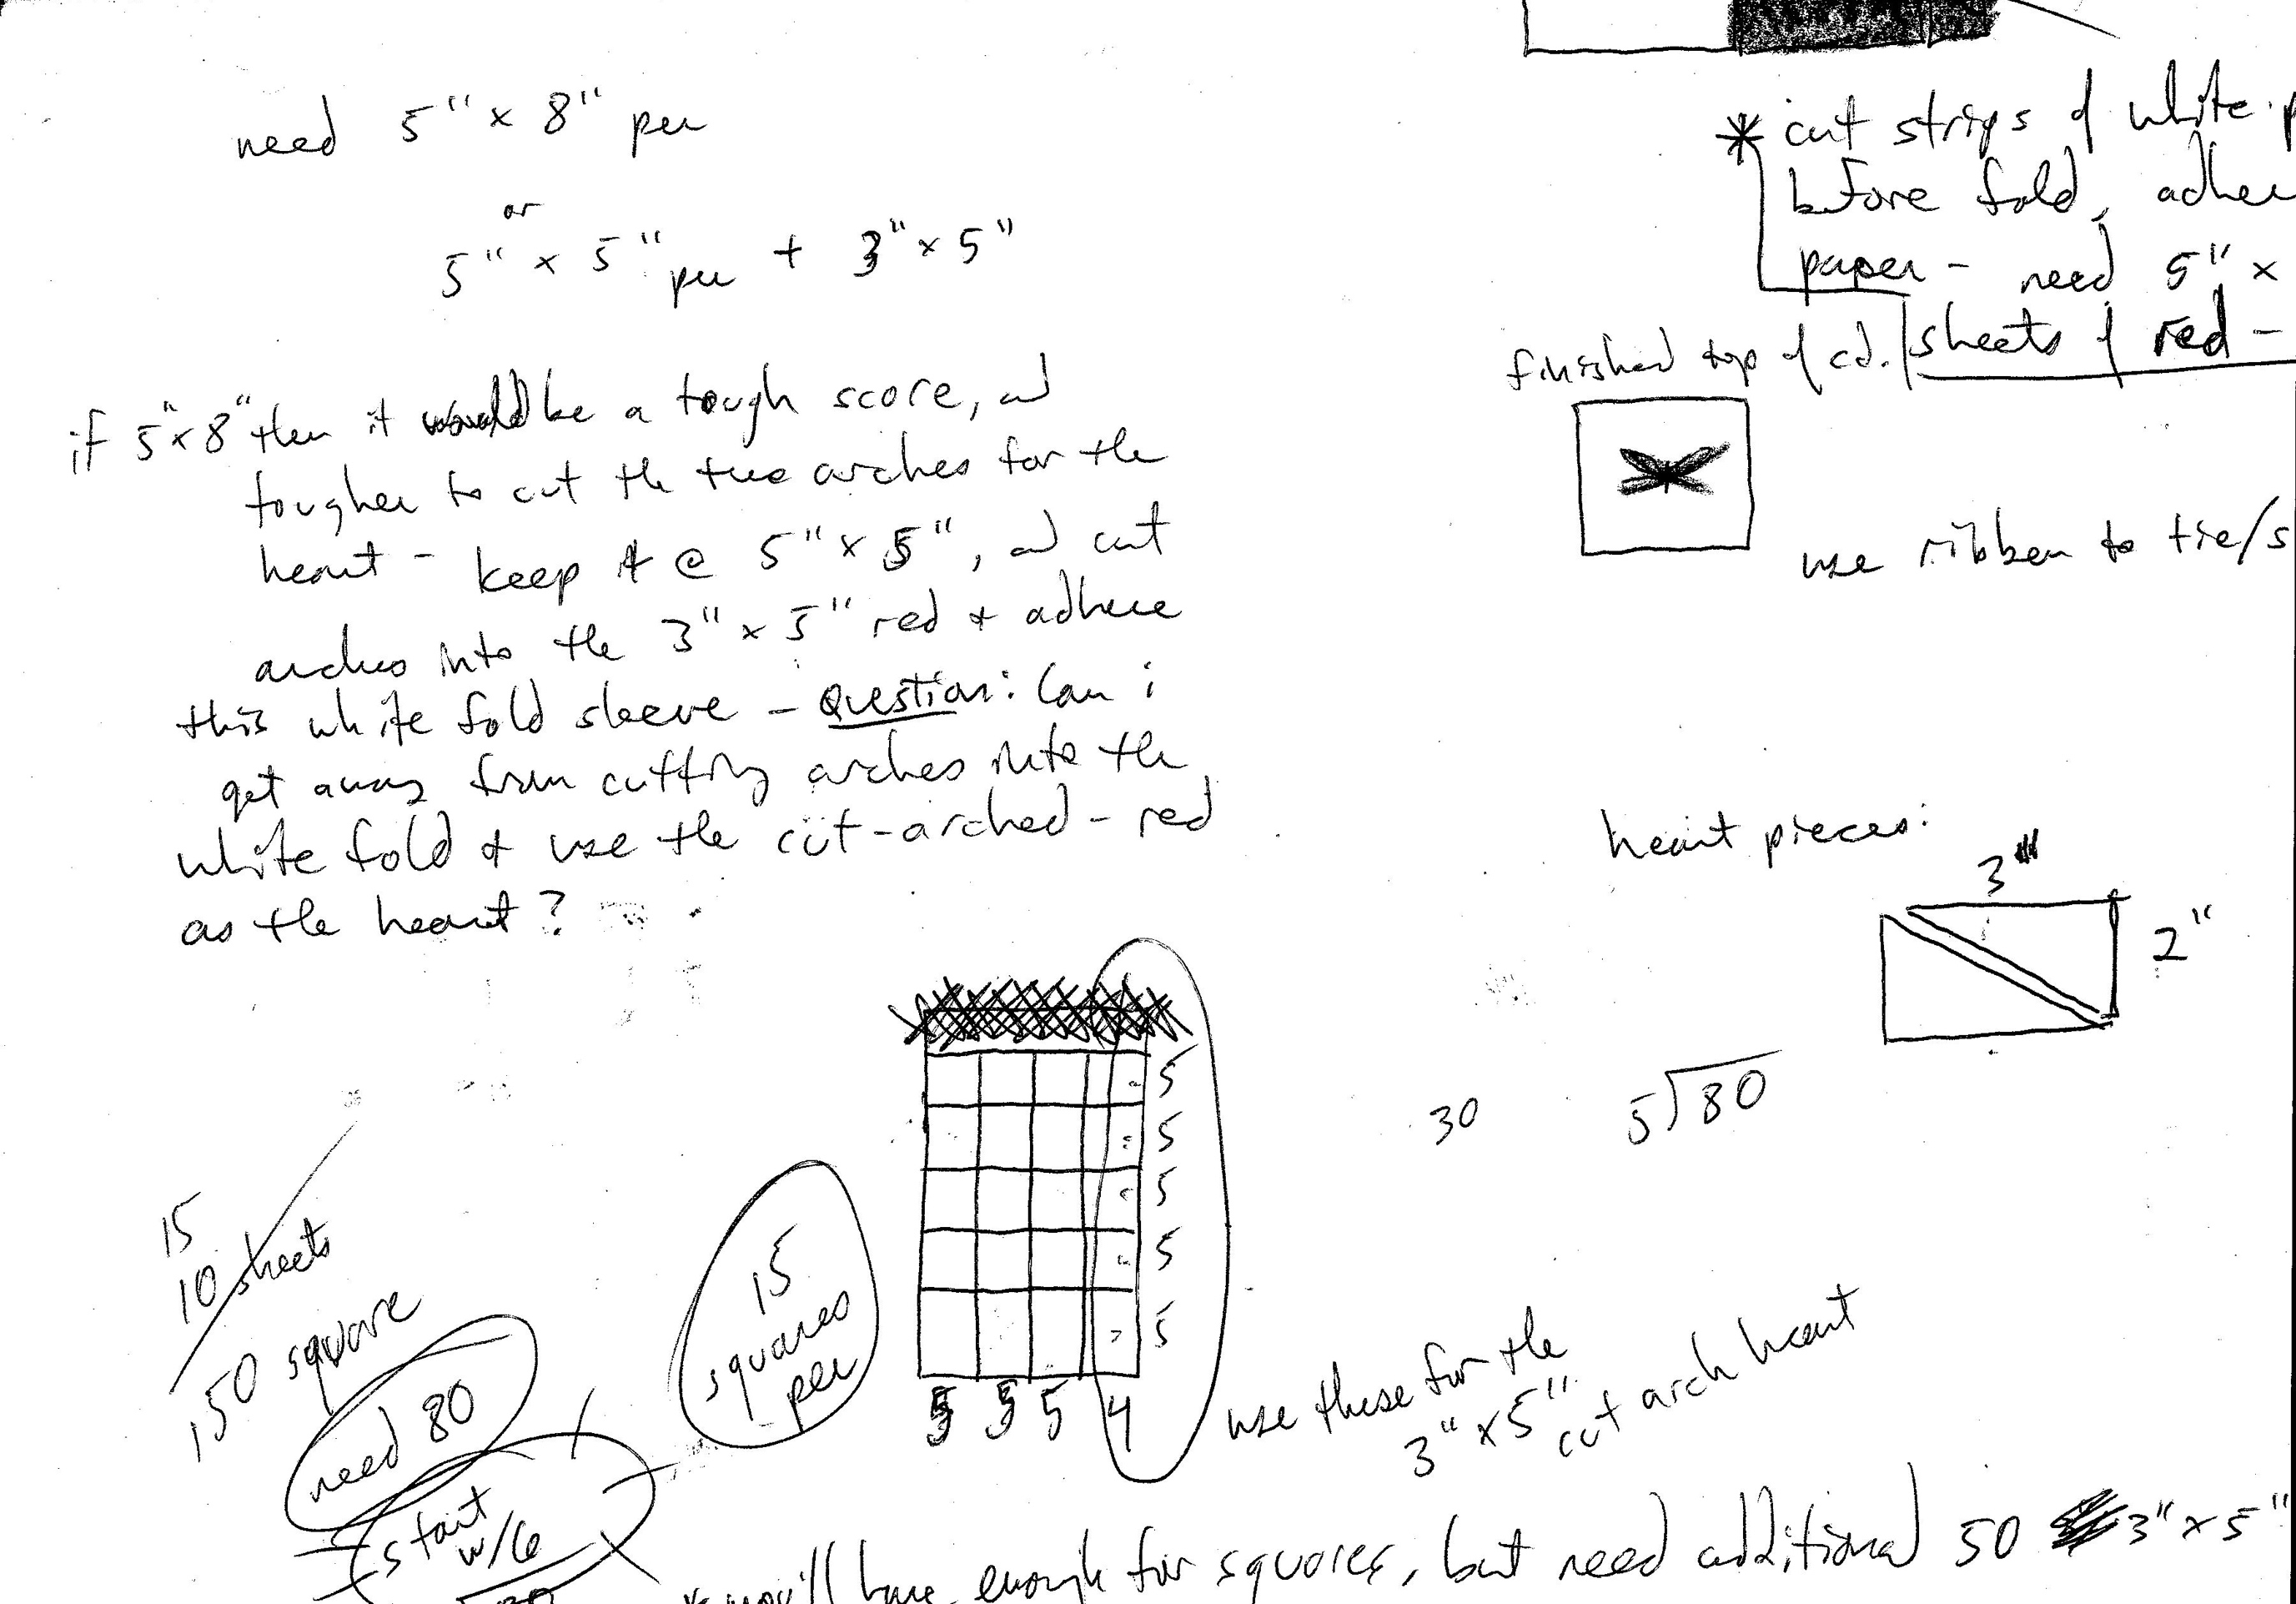 need 5" x 8" per
or
5" x 5" per + 3" x 5"
if 5" x 8" then it would be a tough score, and
tougher to cut the two arches for the
heart - keep it @ 5" x 5", and cut
arches into the 3" x 5" red + adhere
this white fold sleeve - Question: Can i
get away from cutting arches into the
white fold + use the cut-arched-red
as the heart?
* cut strips of white p
before fold, adher
paper - need 5" x
sheets of red -
finished top of cd.
use ribbon to tie/s
heart pieces:
3"
2"
30
5)80
5
5
5
5
5
5 5 5 4
15
squares
per
use these for the
3" x 5"
cut arch heart
15
10 sheets
150 square
need 80
start
w/6
you'll have enough for squares, but need additional 50 3" x 5"